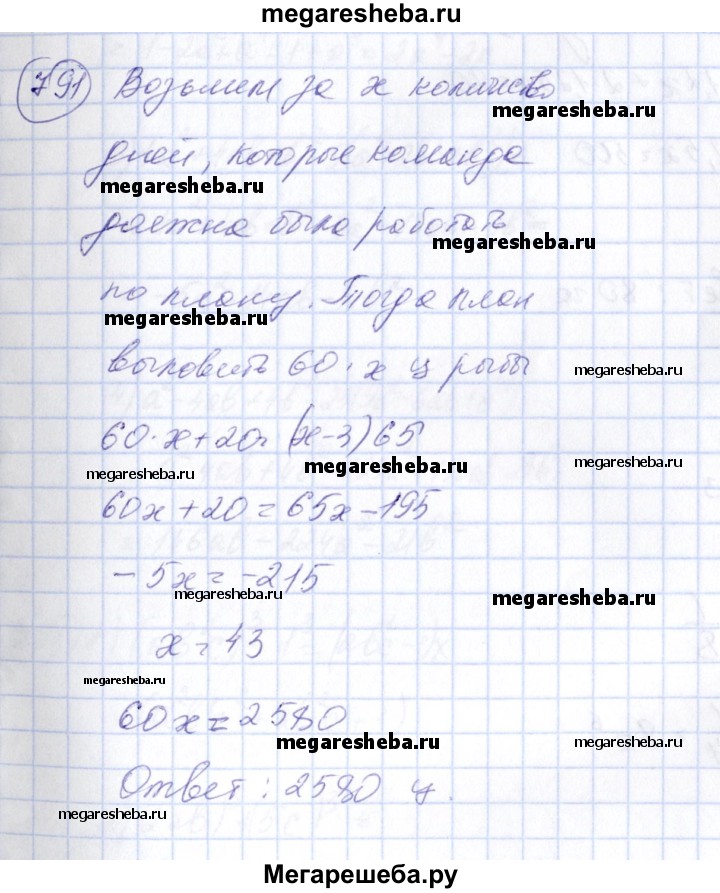 megaresheba.ru
791 Возьмем за x количество
megaresheba.ru
дней, которые команда
megaresheba.ru
должна была работать
megaresheba.ru
по плану. Тогда план
megaresheba.ru
выловить 60·x ц рыбы
megaresheba.ru
60·x+20=(x-3)65
megaresheba.ru
megaresheba.ru
megaresheba.ru
60x+20=65x-195
-5x=-215
megaresheba.ru
megaresheba.ru
x=43
megaresheba.ru
60x=2580
megaresheba.ru
Ответ: 2580 ц.
megaresheba.ru
Мегарешеба.ру